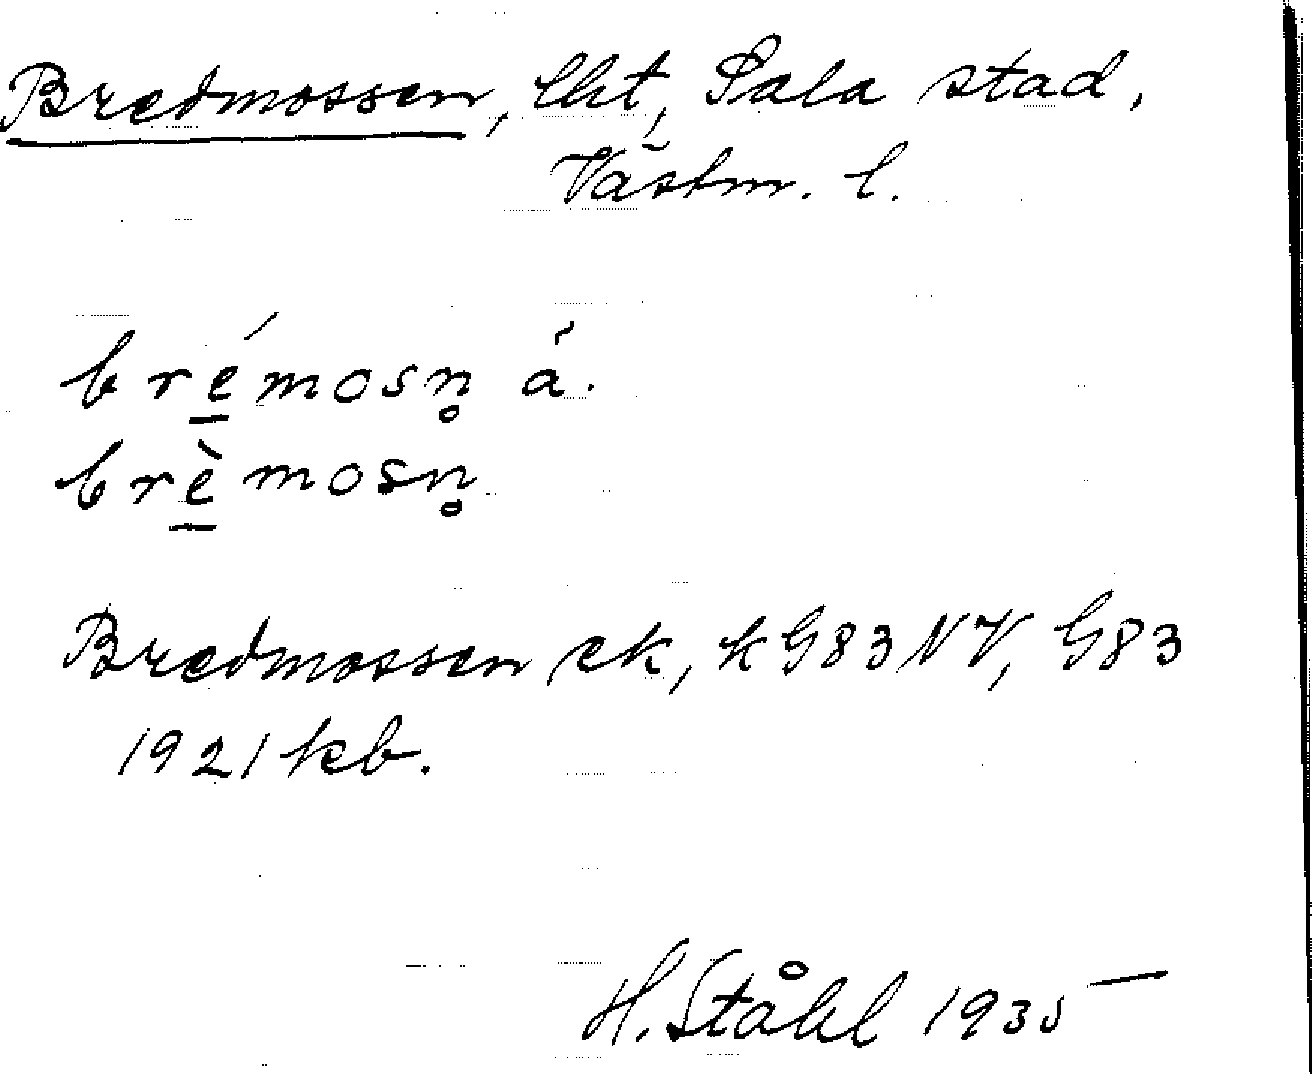 Bredmossen, lht, Sala stad,
Västm. l.
bré̲mosn̥ á.
brè̲mosn̥
Bredmossen ek, k G83NV, G83
1921 kb.
H. Ståhl 1935